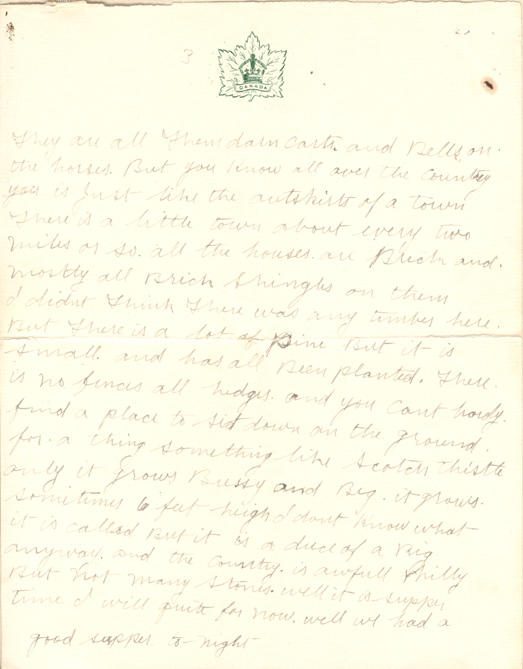 3
CANADA
They are all Themdarn Carts. and Bells, on.
the horses. But you know all over the Country
yous is Just like the outskirts of a town
There is a little town about every two
miles or so. all the houses. are Brick and.
mostly all Brick Shingles on them
I didnt Think There was any timber here.
But There is a lot of Pine But it is
small. and has all Been planted. There.
is no fences all hedges. and you Cant hardy.
find a place to sit down on the ground.
for. a thing something like Scotch Thistle
only it grows Bussy and Big. it grows.
sometimes 6 feet heigh I dont Know what
it is called But it is a duce of a rig
anyway. and the Country. is awfull hilly
But not many stones. well it is supper
time I will quit for now. well we had a
good supper to-night